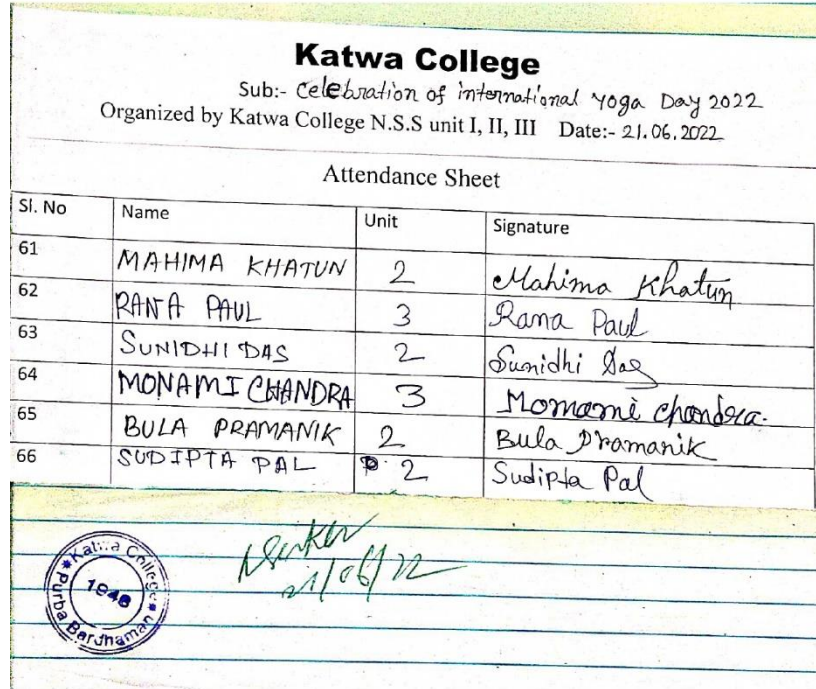 Katwa College
Sub:- Celebration of international yoga Day 2022
Organized by Katwa College N.S.S unit I, II, III Date:- 21.06.2022
Attendance Sheet
Sl. No Name Unit Signature
61 MAHIMA KHATUN 2 Mahima Khatun
62 RANA PAUL 3 Rana Paul
63 SUNIDHI DAS 2 Sunidhi Das
64 MONAMI CHANDRA 3 Monami chandra.
65 BULA PRAMANIK 2 Bula Pramanik
66 SUDIPTA PAL 2 Sudipta Pal
21/06/22
Katwa College
1948
Purba Bardhaman